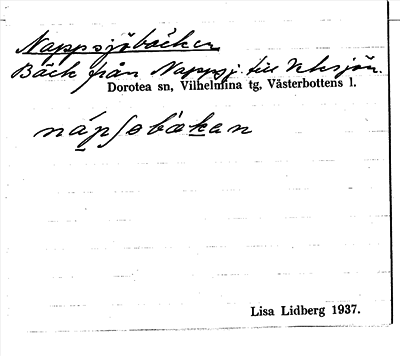 Nappsjöbäcken
Bäck från Nappsj. till Uksjön.
Dorotea sn, Vilhelmina tg, Västerbottens l.
nápʃøbäkan
Lisa Lidberg 1937.